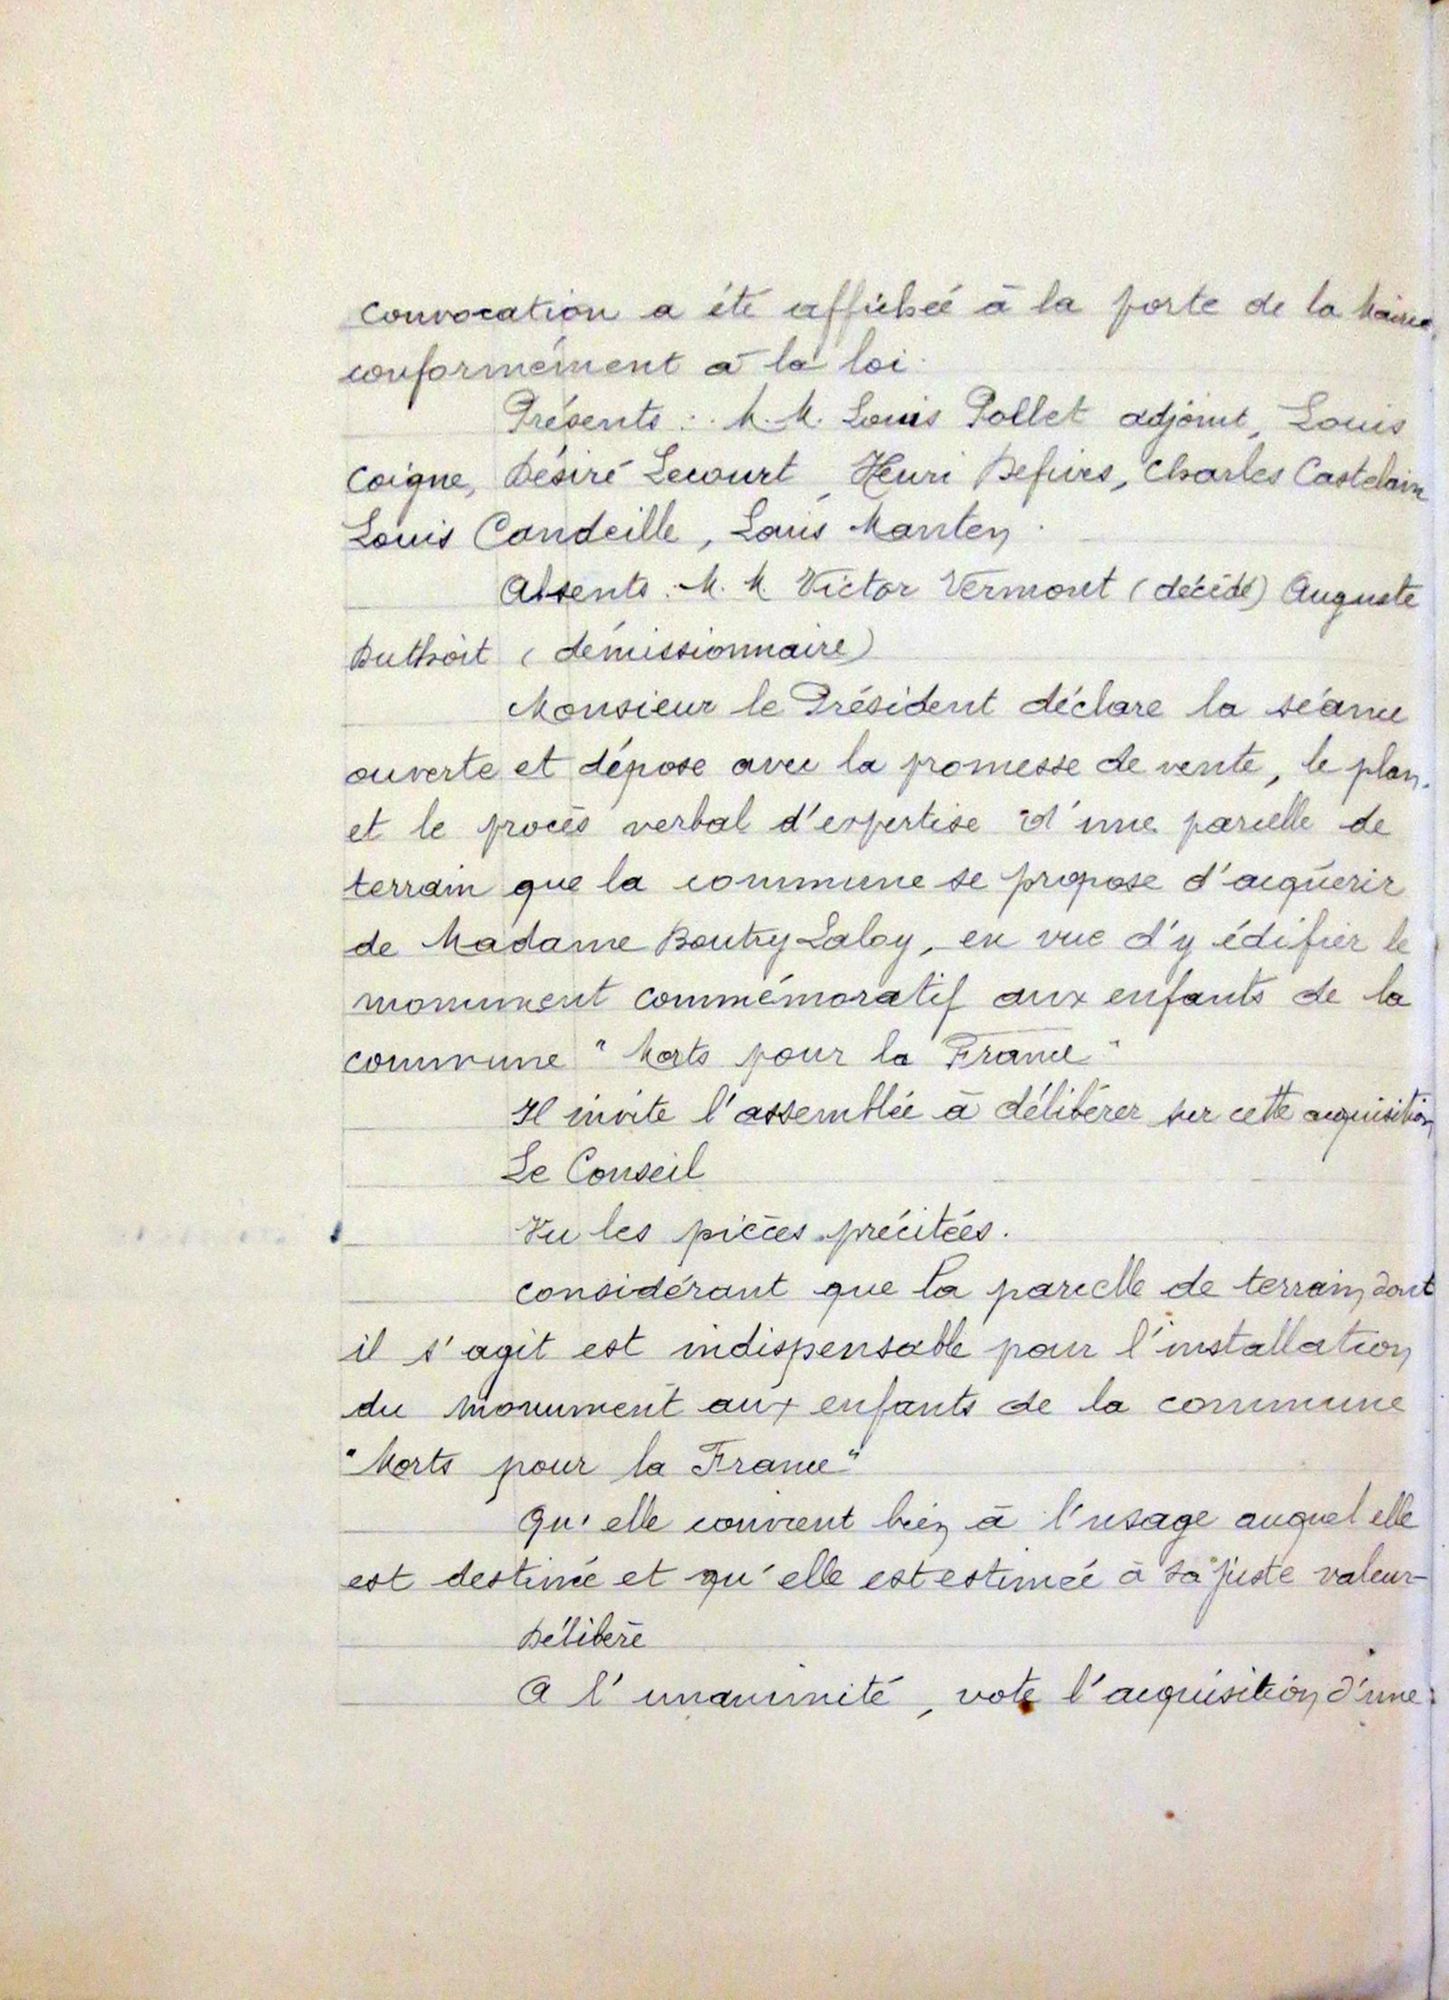 convocation a été affichée à la porte de la Mairie,
conformément à la loi.
Présents : M.M. Louis Pollet adjoint, Louis
Coigne, Désiré Lecourt, Henri Defives, Charles Castelain
Louis Candeille, Louis Manten.
Absents : M.M Victor Vermont (décédé) Auguste
Duthoit (démissionnaire)
Monsieur le Président déclare la séance
ouverte et dépose avec la promesse de vente, le plan
et le procès verbal d'expertise d'une parcelle de
terrain que la commune se propose d'acquérir
de Madame Boutry Laloy, en vue d'y édifier le
monument commémoratif aux enfants de la
commune "Morts pour la France"
Il invite l'assemblée à délibérer sur cette acquisition
Le Conseil
Vu les pièces précitées.
considérant que la parcelle de terrain dont
il s'agit est indispensable pour l'installation
du monument aux enfants de la commune
"Morts pour la France"
Qu'elle convient bien à l'usage auquel elle
est destinée et qu'elle est estimée à sa juste valeur
Délibère
A l'unanimité, vote l'acquisition d'une